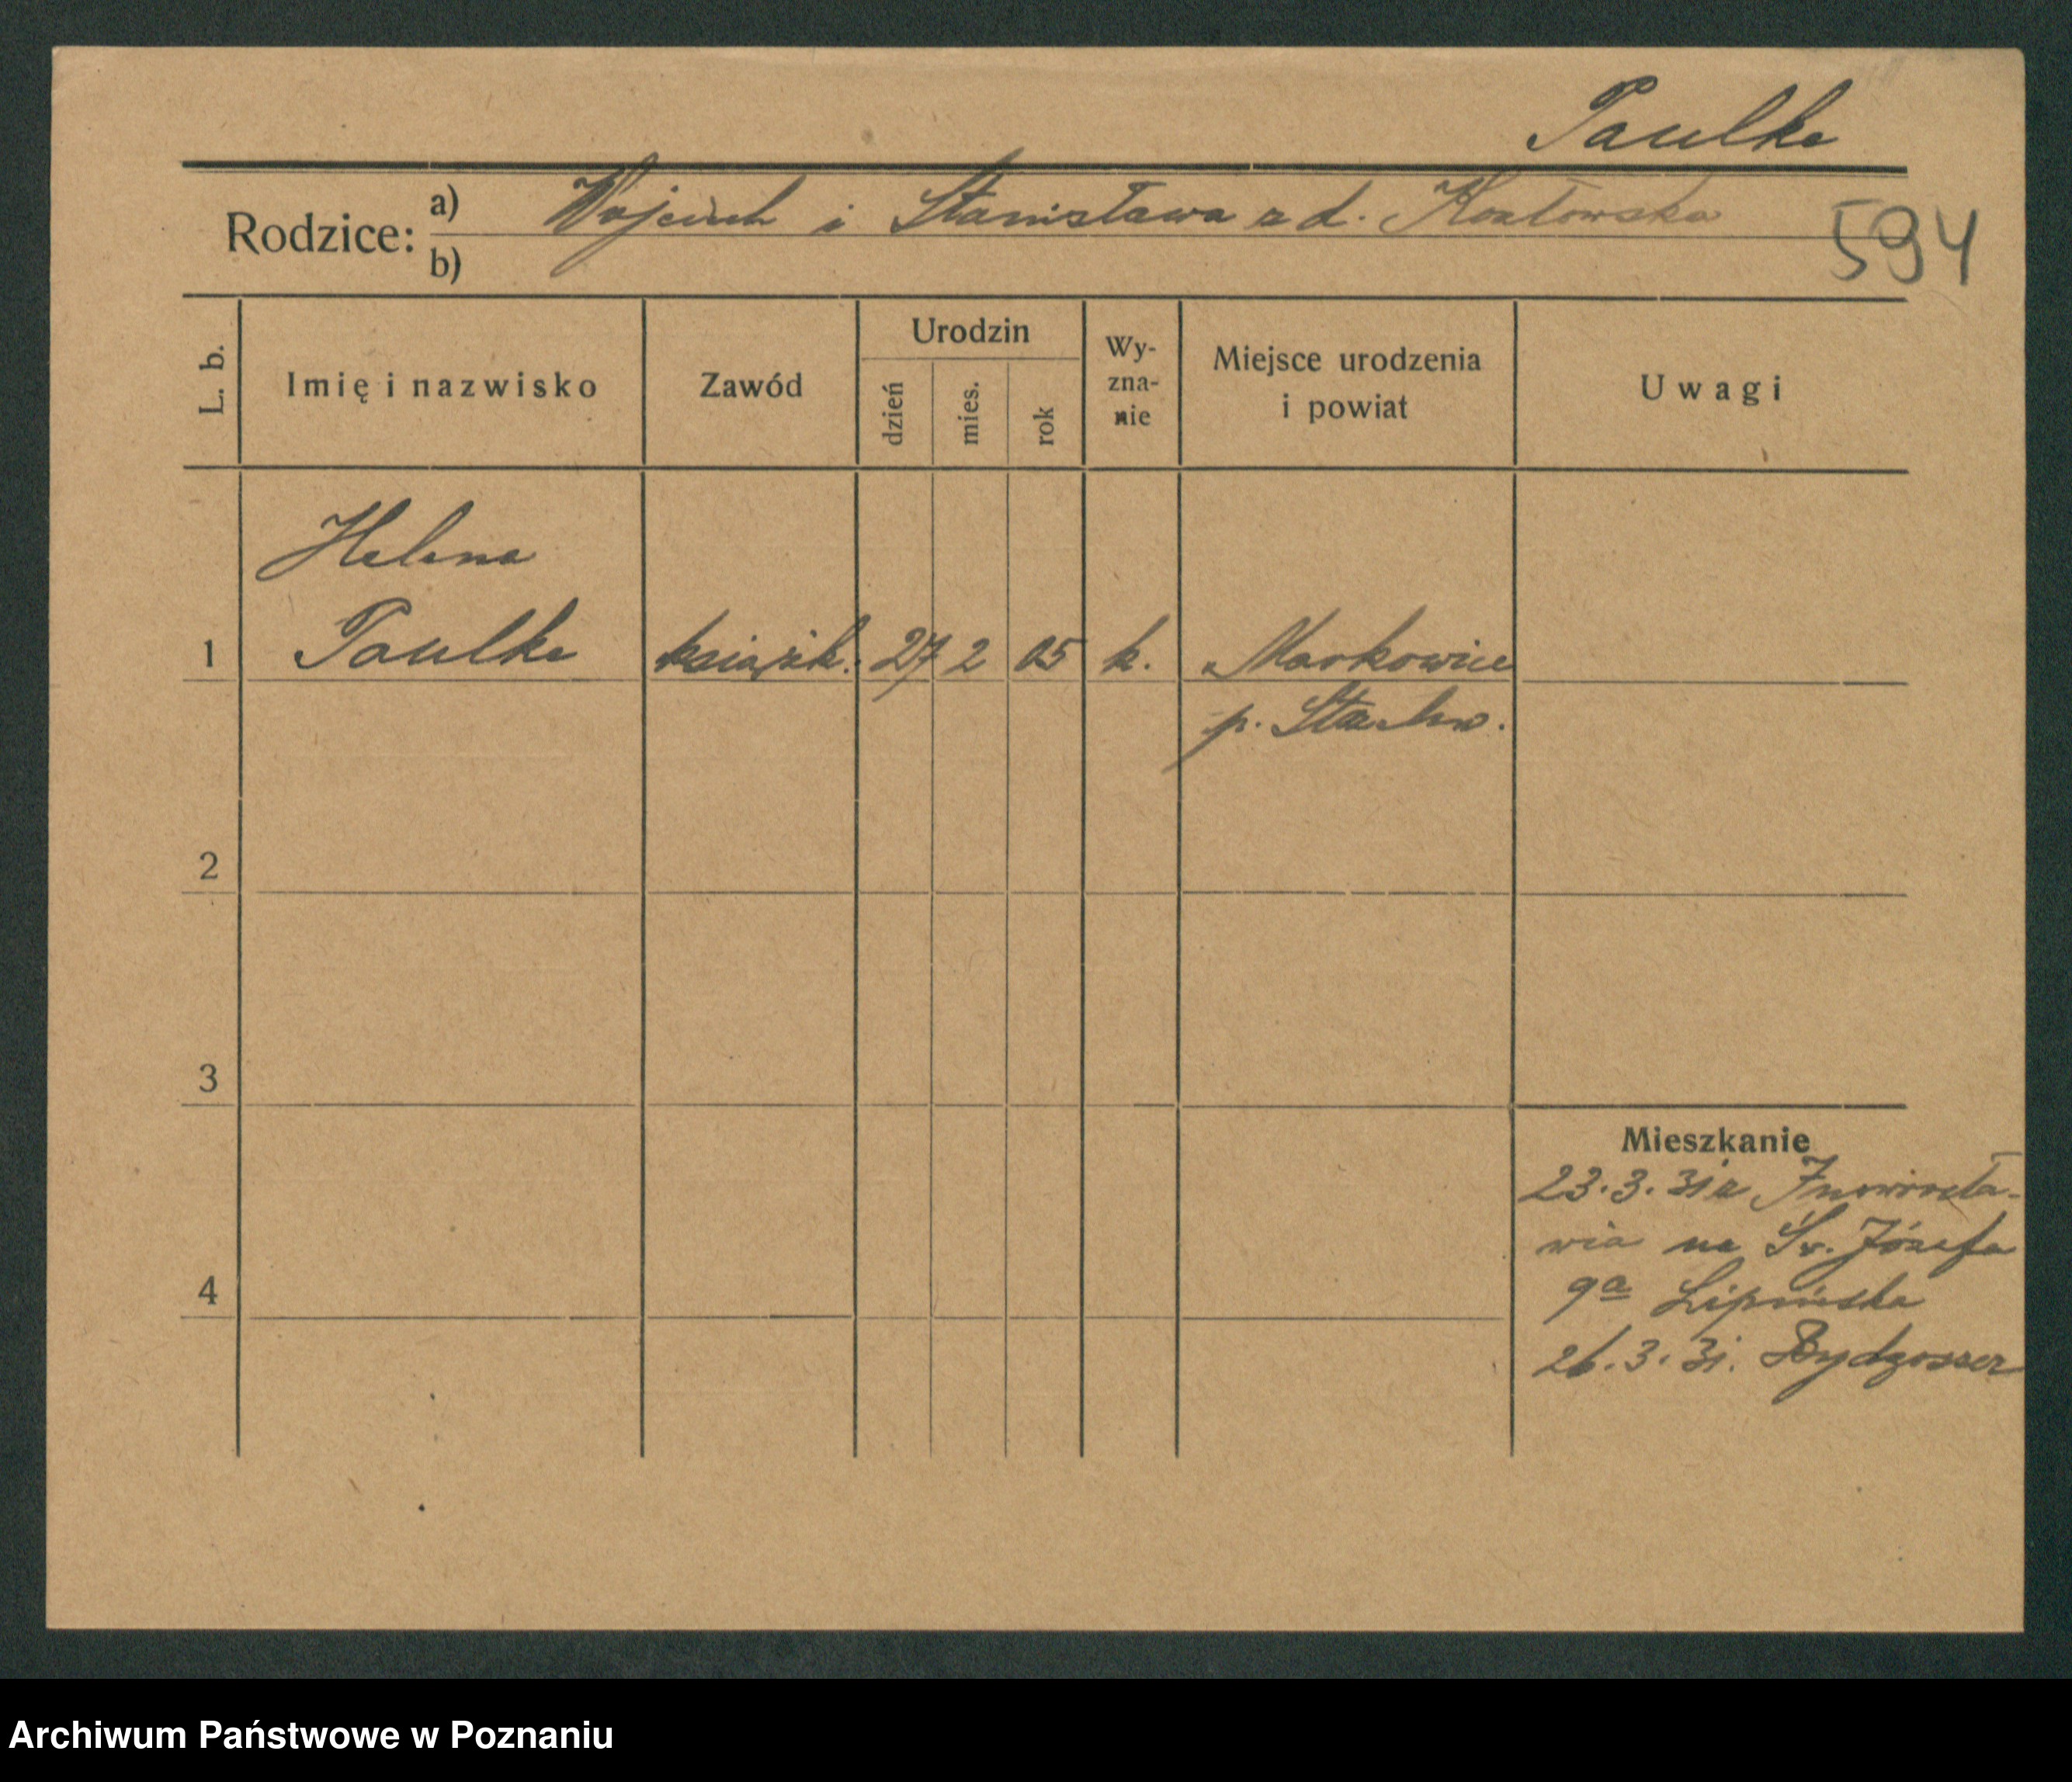 Paulke
Rodzice: a) Wojciech i Stanisława z d. Kozłowska
b)
594
L. b.
Imię i nazwisko
Zawód
Urodzin
dzień
mies.
rok
Wy-
zna-
nie
Miejsce urodzenia
i powiat
Uwagi
Helena
1 Paulke książk. 27 2 05 k. Markowice
p. Strzelno.
2
3
Mieszkanie
23.3.31 z Inowrocła-
wia na Św. Józefa
9a Lipińska
4
26.3.31. Bydgoszcz
Archiwum Państwowe w Poznaniu